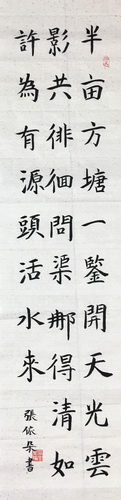 半亩方塘一鑒開天光雲
影共徘徊問渠那得清如
許為有源頭活水來
張依朵書